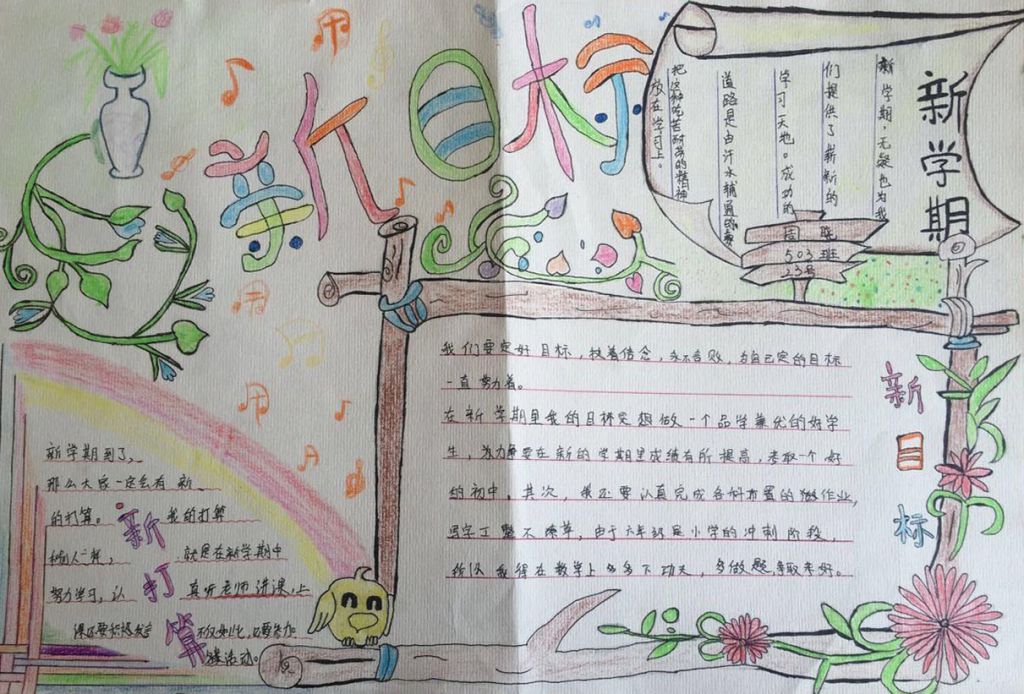 新目标
新学期
新学期，无疑也为我
们提供了崭新的
学习天地。成功的
道路是由汗水铺通的
把这种吃苦耐劳的精神
放在学习上。
503班
23号
我们要定好目标，执着信念，永不言败，为自己定的目标
一直努力着。
在新学期里我的目标定想做一个品学兼优的好学
生，努力争要在新的学期里成绩有所提高，考取一个好
的初中。其次，我还要认真完成各科布置的作业，
写字工整不潦草，由于六年级是小学的冲刺阶段，
所以我得在数学上多多下功夫，多做题，争取考好。
新目标
新学期到了，
那么大家一定会有新
的打算。我的打算
和别人一样，就是在新学期中
努力学习，认真听老师讲课，上
课还要积极发言不仅如此，还要参加
活动。
新打算